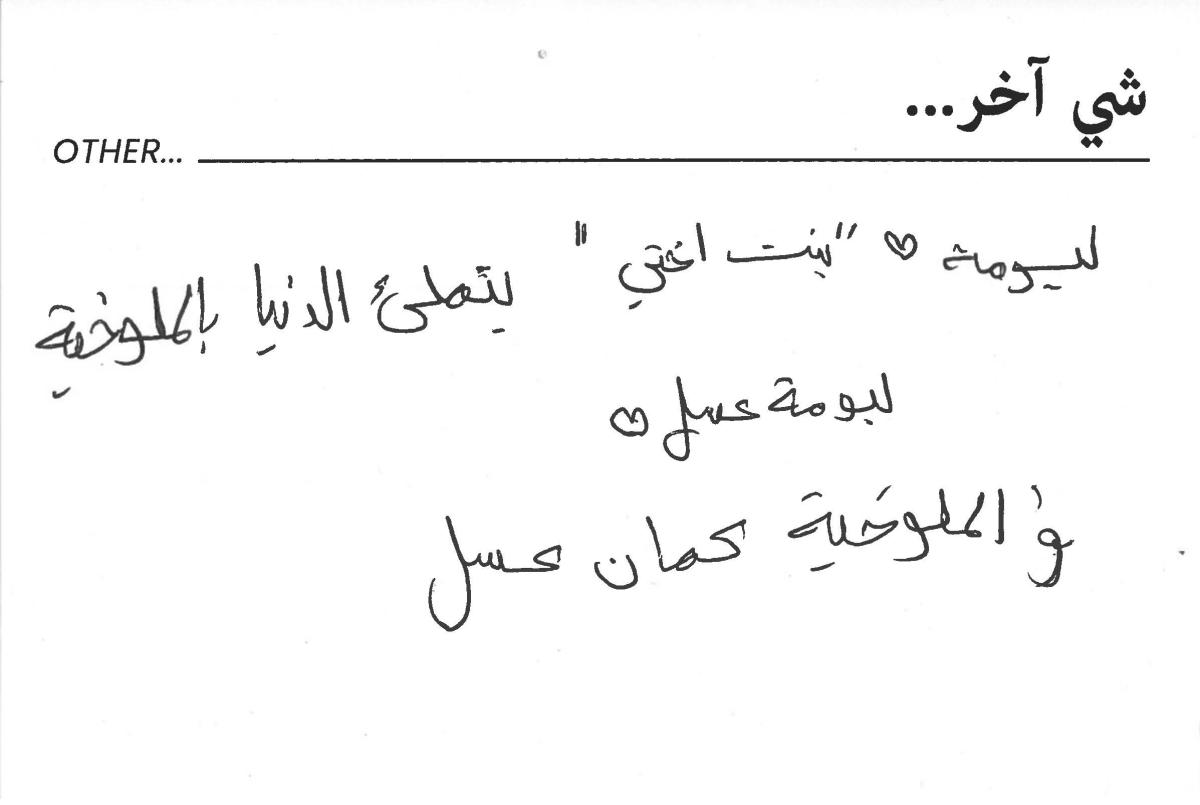 شي آخر...
OTHER...
ليومة ♡ "بنت اختي" بتملئ الدنيا بالملوخية
ليومة عسل ♡
و الملوخية كمان عسل